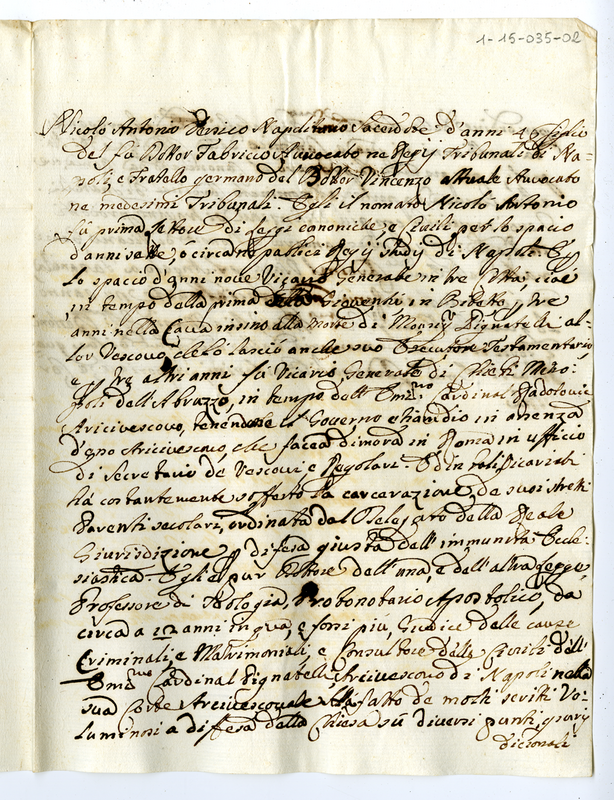 1-15-035-02
Nicolò Antonio Napolitano Sacerdote d'anni 46 figlio
del fù Dottor Fabricio Avvocato ne Regij Tribunali di Na-
poli, e Fratello germano del Dottor Vincenzo attuale Avvocato
ne medesimi Tribunali. Egli il nomato Nicolò Antonio
fù prima lettore di leggi canoniche e civili per lo spacio
d'anni sette, ò circa ne publici Regij Studij di Napoli. E p
lo spacio d'anni nove Vicario Generale in tre Città, cioè
in tempo della prima in p tre
anni nella Cava insino alla morte di Monsr Pignatelli al-
lor Vescovo, che lo lasciò anche suo Executore Testamentario
e p tre altri anni fù Vicario Generale di Chieti Metro-
poli dell'Abruzzo, in tempo dell'Emmo Cardinal Radolovic
Arcivescovo, tenendone il Governo etiandio in assenza
d'esso Arcivescovo, che facea dimora in Roma in ufficio
di Secretario de Vescovi e Regolari. Ed in tali Vicariati
hà costantemente sofferto la carcerazione de suoi stretti
Parenti secolari, ordinata dal Delegato della Reale
Giurisdizione p difesa giusta dell'immunità Eccle-
siastica. Egli è pur Dottore dell'una, e dell'altra legge
Professore di Teologia, Protonotario Apostolico, da
circa a 12 anni in quà, e forsi più, Giudice delle cause
Criminali, e Matrimoniali, e Consultore delle Civili dell'
Emmo Cardinal Pignatelli, Arcivescovo di Napoli nella
sua Corte Arcivescovale. Hà fatto de molti scritti Vo-
luminosi a difesa della Chiesa sù diversi punti giuris
dizionali